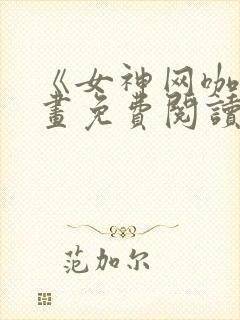 《女神网咖
畫免費閱讀
范加尔